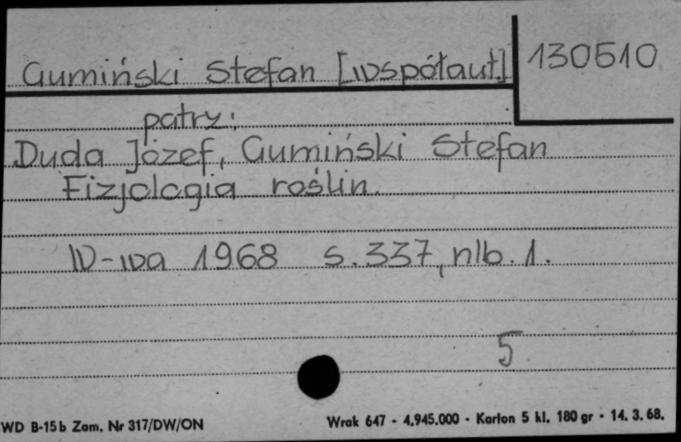 Gumiński Stefan [współaut.] 130510
patrz:
Duda Józef, Gumiński Stefan
Fizjologia roślin.
W-wa 1968 s. 337, nlb. 1.
5
WD B-15b Zam. Nr 317/DW/ON Wrak 647 - 4.945.000 - Karton 5 kl. 180 gr - 14. 3. 68.